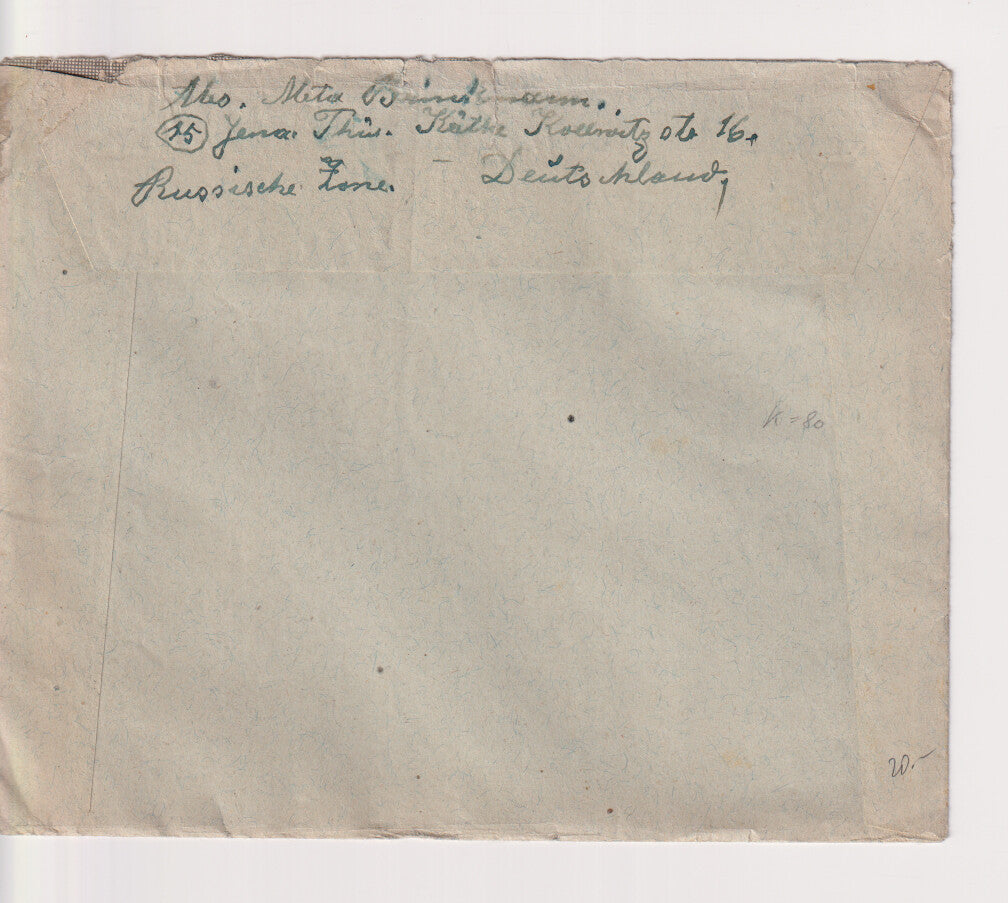 Abs. Meta Brinkmann.
(15) Jena. Thür. Käthe Kollwitz str 16.
Russische Zone. Deutschland,
K = 80
20.-